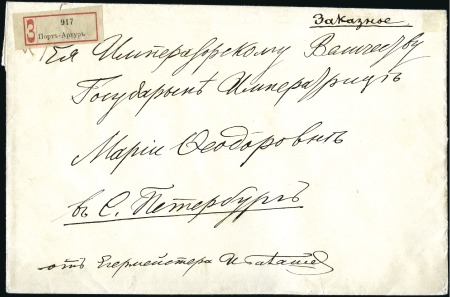 Заказное.
З
917
Портъ-Артуръ
Ея Императорскому Величеству
Государынѣ Императрицѣ
Маріи Ѳеодоровнѣ
въ С. Петербургъ
отъ Егермейстера И. Балашева